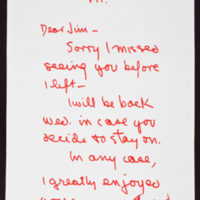 Dear Jim –
Sorry I missed
seeing you before
I left –
I will be back
Wed. in case you
decide to stay on.
In any case,
I greatly enjoyed